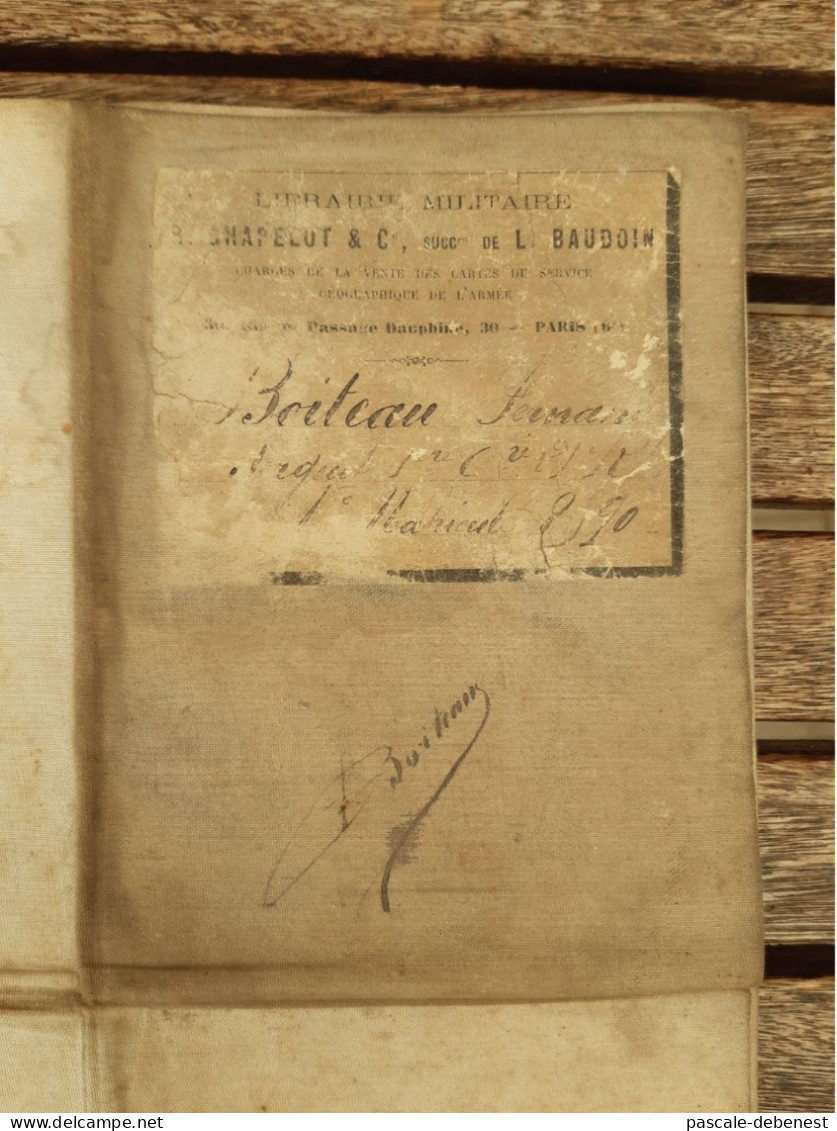 LIBRAIRIE MILITAIRE
R. CHAPELOT & Cie, SUCCrs DE L. BAUDOIN
CHARGÉS DE LA VENTE DES CARTES DU SERVICE
GÉOGRAPHIQUE DE L'ARMÉE
30, Passage Dauphine, 30 — PARIS (6e)
Boiteau Fernan
No 8390
Boiteau
pascale-debenest